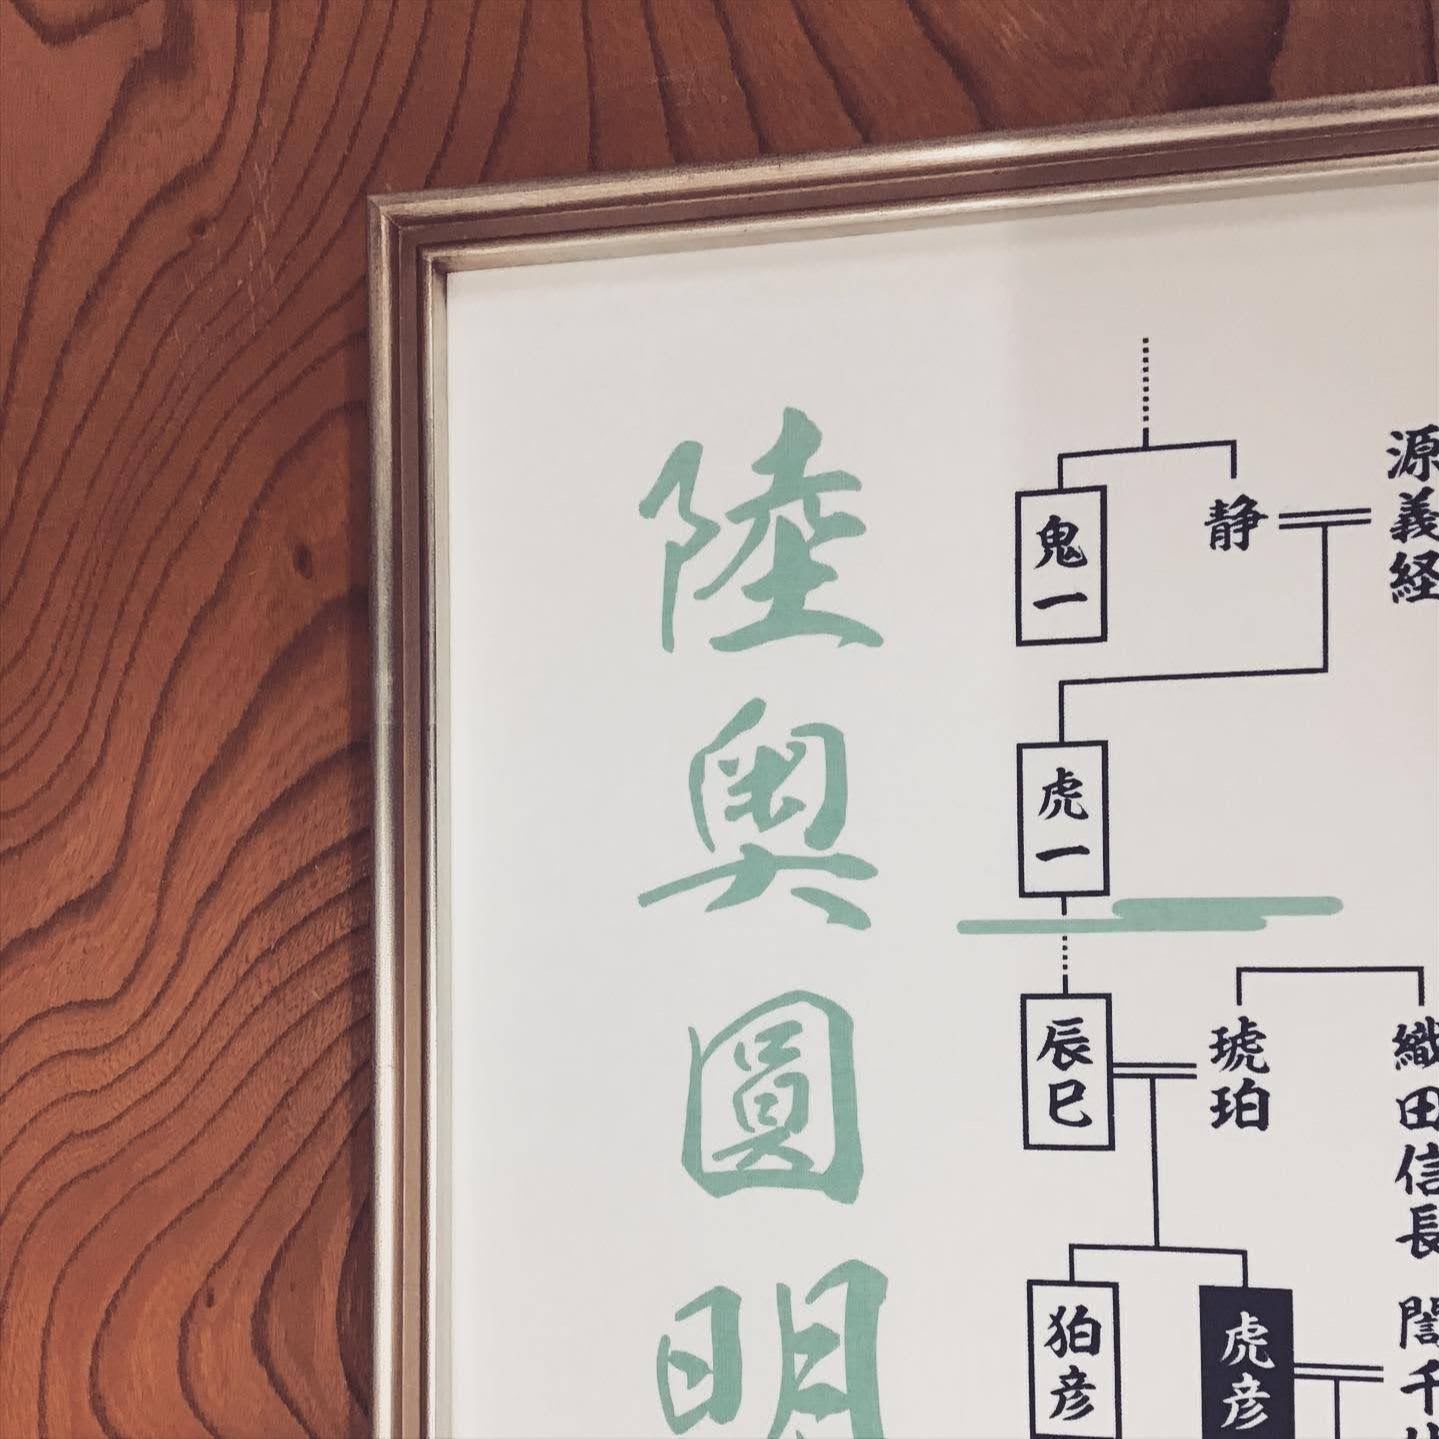 陸奥圓明
鬼一
静
源義経
虎一
辰巳
琥珀
織田信長
狛彦
虎彦
誾千代